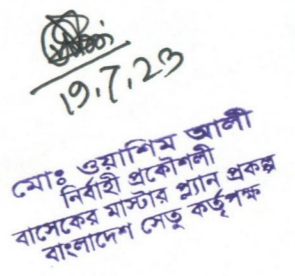 19.7.23
মোঃ ওয়াশিম আলী
নির্বাহী প্রকৌশলী
বাসেকের মাস্টার প্ল্যান প্রকল্প
বাংলাদেশ সেতু কর্তৃপক্ষ